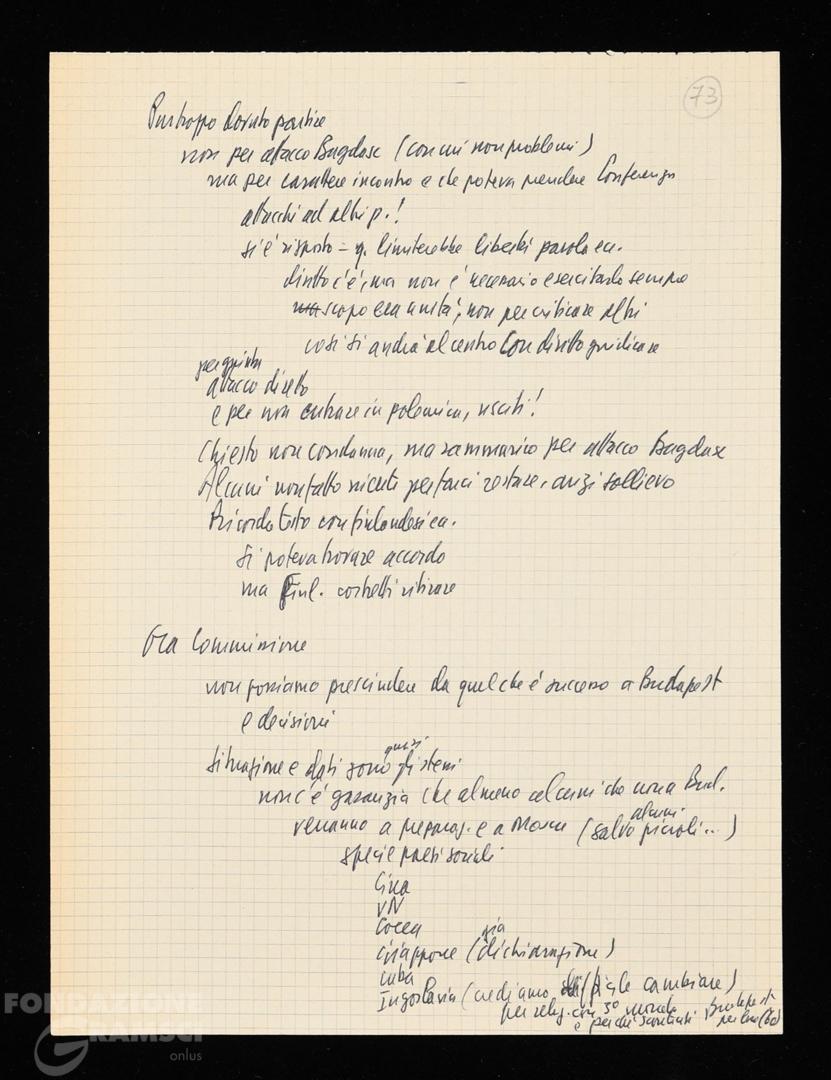 73
Purtroppo dovuto partire
non per attacco Bagdasc (con cui non problemi)
ma per carattere incontro e che poteva prendere Conferenza
attacchi ad altri p.!
si è risposto = q. limiterebbe libertà parola ecc.
diritto c'è, ma non è necessario esercitarlo sempre
ma scopo era unità, non per criticare altri
così si andrà al centro con diritto giudicare
per giunta
attacco diretto
e per non entrare in polemica, usciti!
Chiesto non condanna, ma rammarico per attacco Bagdasc
Alcuni non fatto niente per farci restare, anzi sollievo
Ricorda testo con finlandesi ecc.
si poteva trovare accordo
ma Finl. costretti ritirare
Ora Commissione
non possiamo prescindere da quel che è successo a Budapest
e decisioni
quasi
situazione e dati sono gli stessi
non c'è garanzia che almeno alcuni che non a Bud.
alcuni
verranno a preparaz. e a Mosca (salvo piccoli...)
specie paesi social.
Cina
VN
Corea
già
Giappone (dichiarazione)
Cuba
Jugoslavia (crediamo difficile cambiare)
per relaz. con 3° mondo
e perché Budapest
FONDAZIONE
GRAMSCI
onlus